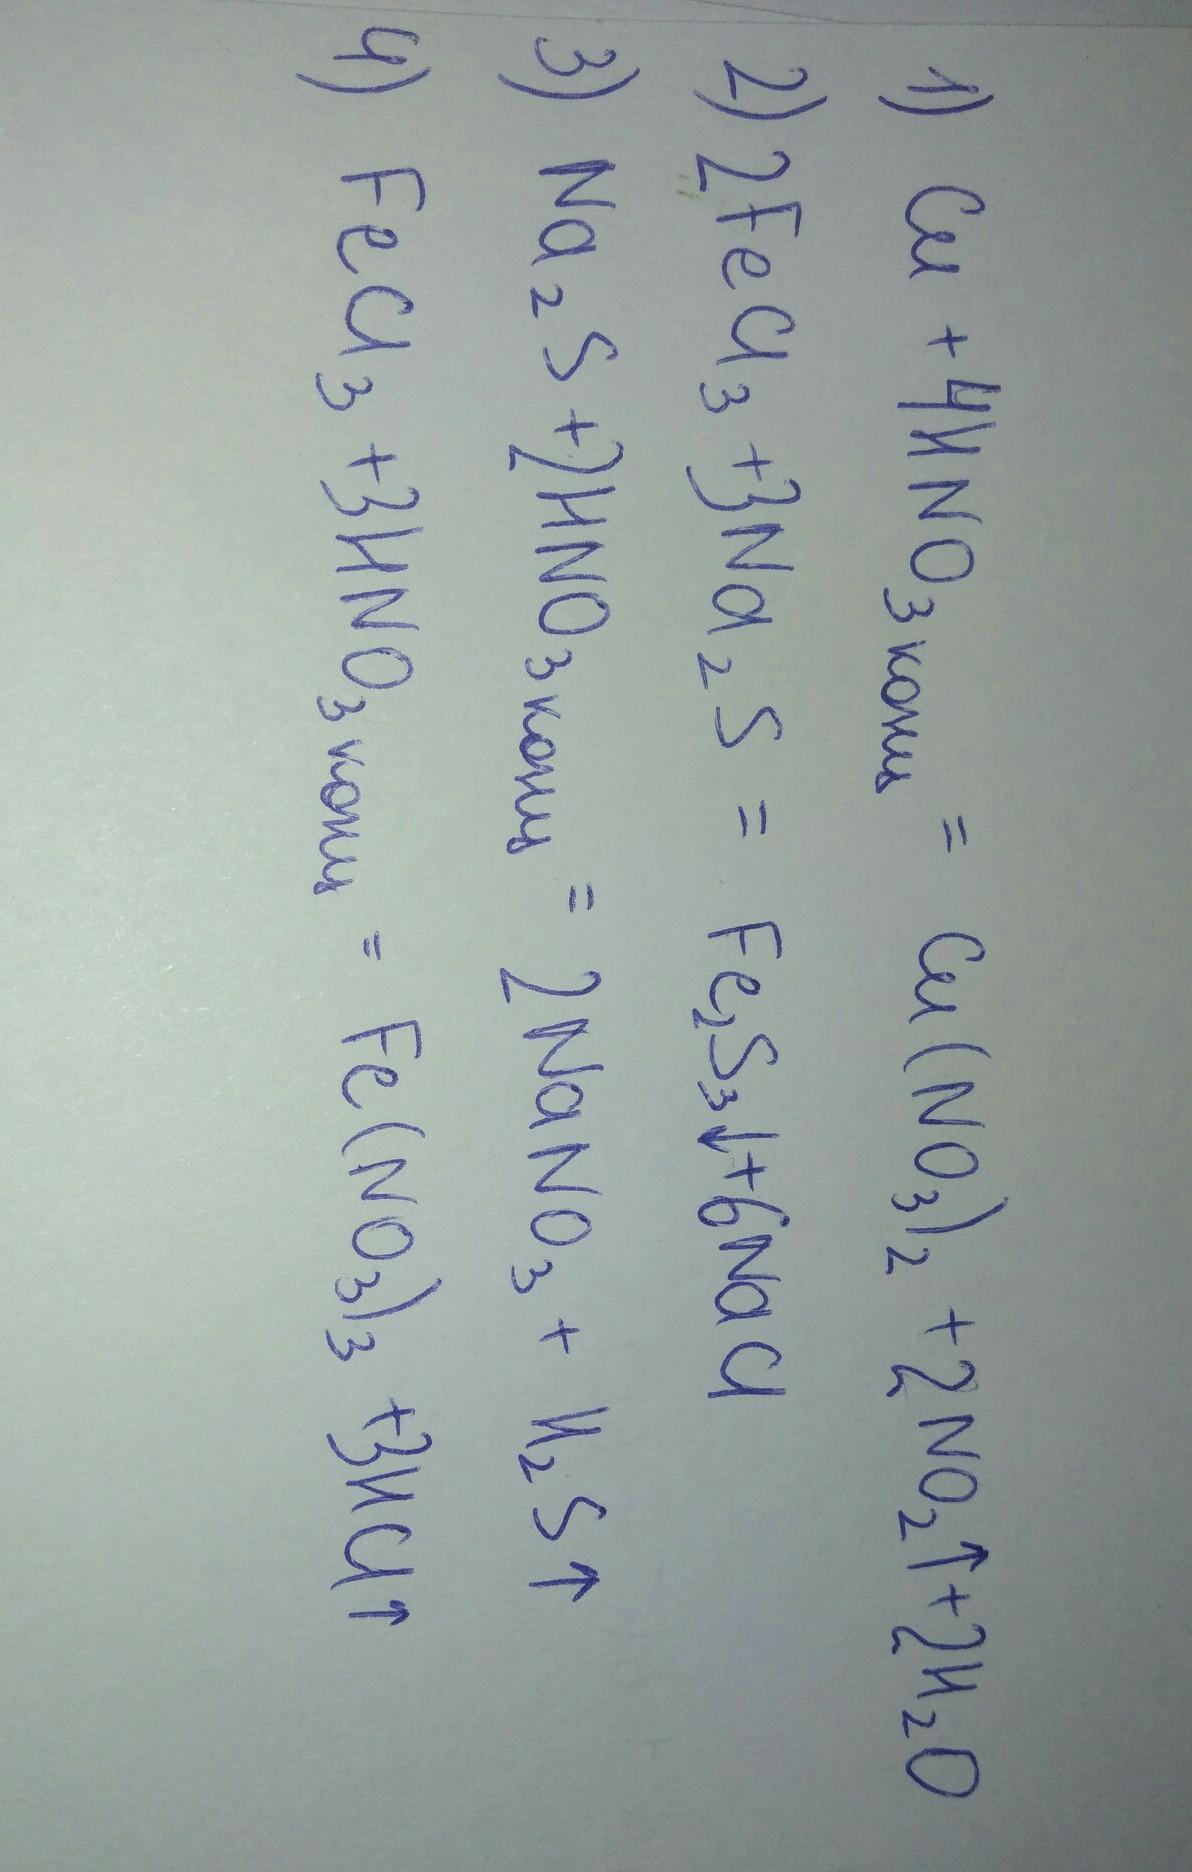 1) Cu + 4HNO₃ конц = Cu(NO₃)₂ + 2NO₂↑ + 2H₂O
2) 2FeCl₃ + 3Na₂S = Fe₂S₃↓ + 6NaCl
3) Na₂S + 2HNO₃ конц = 2NaNO₃ + H₂S↑
4) FeCl₃ + 3HNO₃ конц = Fe(NO₃)₃ + 3HCl↑